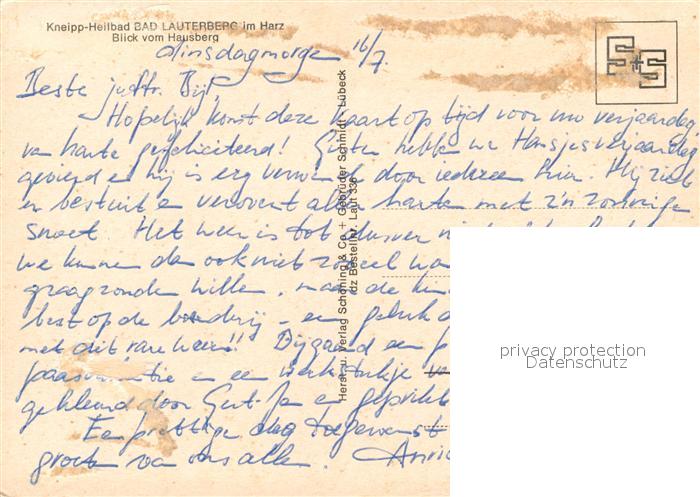 Kneipp-Heilbad BAD LAUTERBERG im Harz
Blick vom Hausberg
dinsdagmorge 16/7.
Beste juffr. Bijl,
Hopelijk komt deze kaart op tijd voor uw verjaardag
van harte gefeliciteerd! Gister hebben we Hansjes verjaardag
gevierd en hij is erg verwend door iedereen hier. Hij
en verovert alle harten met z'n zonnige
snoet. Het weer is tot dusver
we kunnen dan ook niet zoveel
graag zouden willen, maar de
best op de boerderij - een geluk
met dit rare weer!! Bijgaand een
en een werkstukje
gekleurd door Gert-Jan en geprikt
Een prettige dag toegewenst
groeten van ons allen.
Herst. u. Verlag Schöning & Co. + Gebrüder Schmidt - Lübeck
dz Bestellnr. Laut 336
S+S
privacy protection
Datenschutz